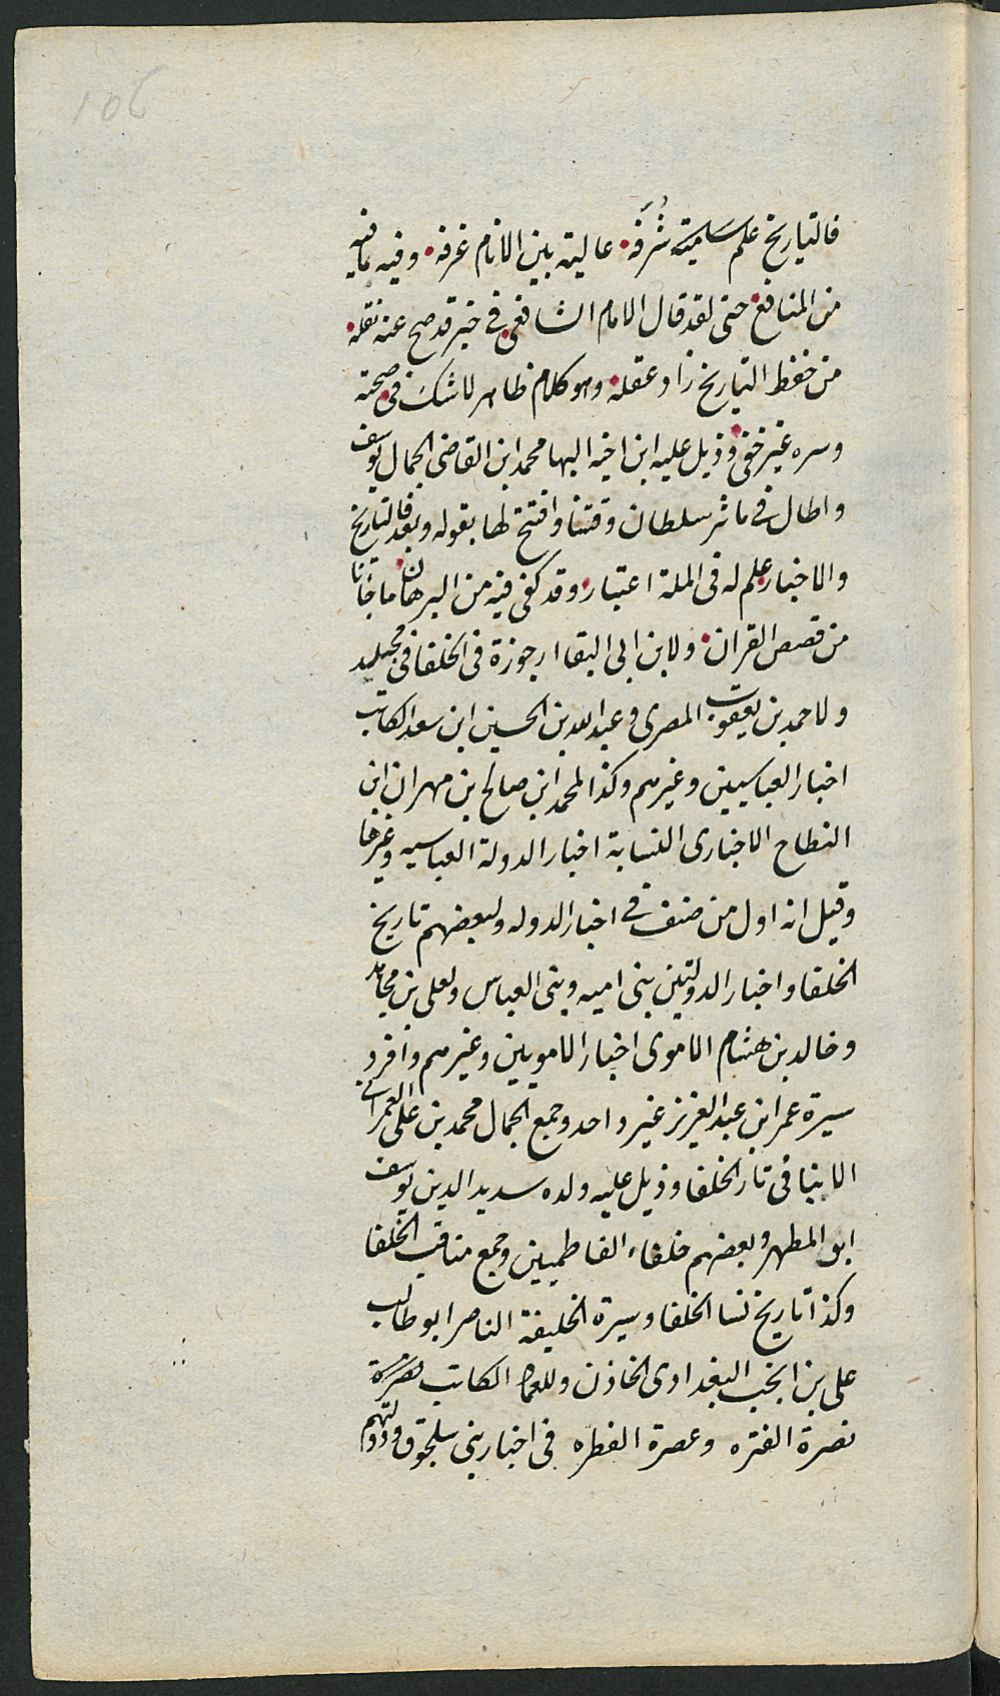 106
فالتاريخ علم سامية شرفه عالية بين الانام غرفه وفيه ما فيه
من المنافع حتى لقد قال الامام الشافعي في خبر قد صح عنه نقله
من حفظ التاريخ زاد عقله وهو كلام ظاهر لا شك في صحته
وسره غير خفي وذيل عليه ابن اخيه البها محمد ابن القاضى الجمال يوسف
واطال في ماثر سلطان وقتنا وافتتح لها بقوله وبعد فالتاريخ
والاخبار علم له فى الملة اعتبار وقد كفى فيه من البرهان ما جانا
من قصص القران ولابن ابى البقا ارجوزة فى الخلفا فى مجيليد
ولاحمد بن يعقوب المصرى وعبد الله بن الحسين ابن سعد الكاتب
اخبار العباسيين وغيرهم وكذا لمحمد ابن صالح بن مهران ابن
النطاح الاخبارى النسابة اخبار الدولة العباسيه وغيرها
وقيل انه اول من صنف في اخبار الدوله ولبعضهم تاريخ
الخلفا واخبار الدولتين بنى اميه وبنى العباس ولعلى بن مجاهد
وخالد بن هشام الاموى اخبار الامويين وغيرهم وافرد
سيرة عمر ابن عبد العزيز غير واحد وجمع الجمال محمد بن على العمراني
الانبا فى تار الخلفا وذيل عليه ولده سديد الدين يوسف
ابو المطهر وبعضهم خلفاء الفاطميين وجمع مناقب الخلفا
وكذا تاريخ نسا الخلفا وسيرة الخليفة الناصر ابو طالب
على بن انجب البغدادى الخازن وللعماد الكاتب
نصرة الفتره وعصرة الفطره فى اخبار بنى سلجوق ودولتهم